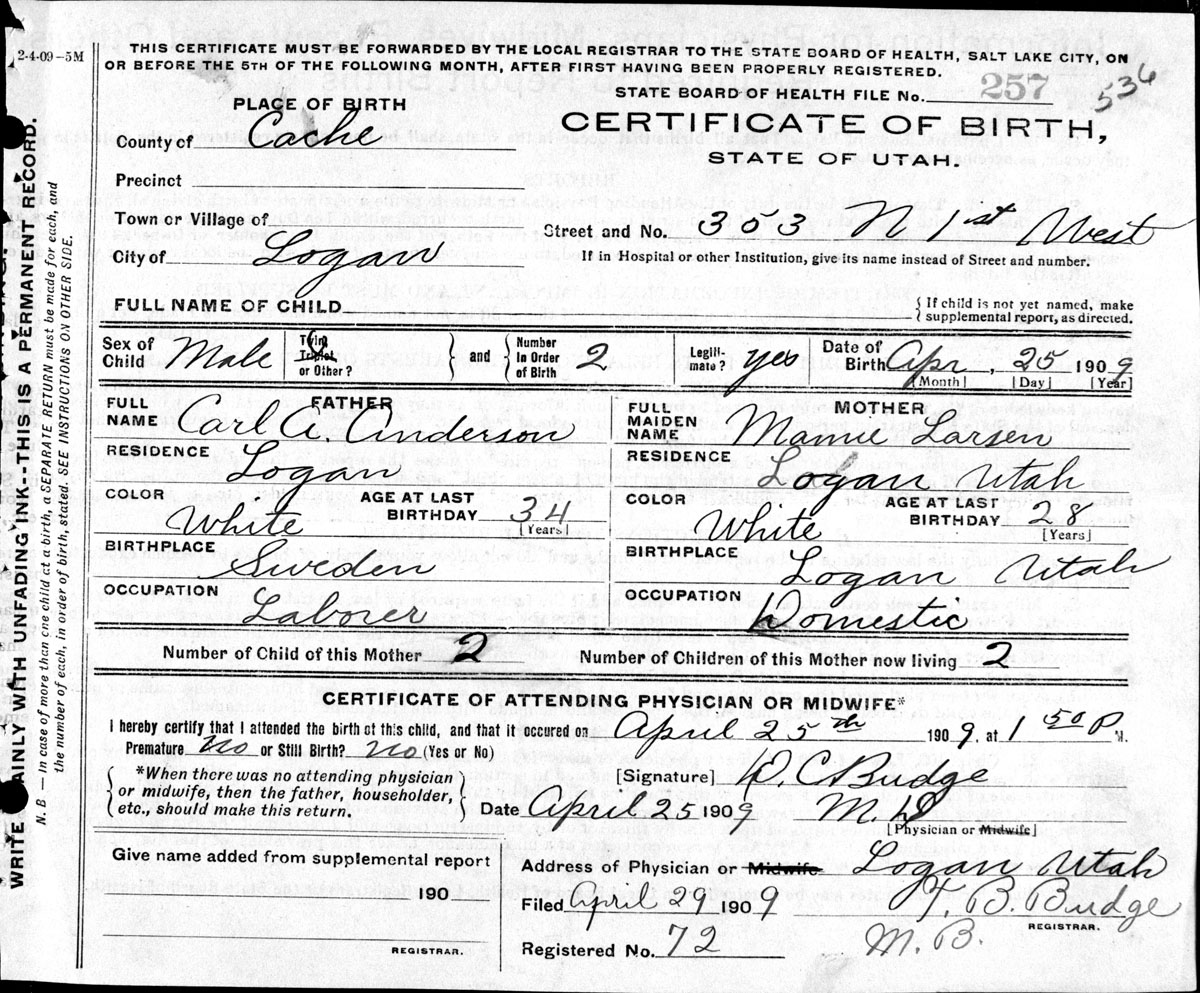 2-4-09-5M
THIS CERTIFICATE MUST BE FORWARDED BY THE LOCAL REGISTRAR TO THE STATE BOARD OF HEALTH, SALT LAKE CITY, ON
OR BEFORE THE 5TH OF THE FOLLOWING MONTH, AFTER FIRST HAVING BEEN PROPERLY REGISTERED.
STATE BOARD OF HEALTH FILE No. 257 536
PLACE OF BIRTH
CERTIFICATE OF BIRTH,
STATE OF UTAH.
County of Cache
Precinct
Town or Village of
Street and No. 353 N 1st West
City of Logan
If in Hospital or other Institution, give its name instead of Street and number.
FULL NAME OF CHILD
{ If child is not yet named, make
supplemental report, as directed.
Sex of Child Male
Twin Triplet or Other?
and
Number in Order of Birth 2
Legiti-mate? yes
Date of Birth Apr, 25 1909
[Month] [Day] [Year]
FATHER
FULL NAME Carl A. Anderson
MOTHER
FULL MAIDEN NAME Mamie Larsen
RESIDENCE Logan
RESIDENCE Logan Utah
COLOR White
AGE AT LAST BIRTHDAY 34
[Years]
COLOR White
AGE AT LAST BIRTHDAY 28
[Years]
BIRTHPLACE Sweden
BIRTHPLACE Logan Utah
OCCUPATION Laborer
OCCUPATION Domestic
Number of Child of this Mother 2
Number of Children of this Mother now living 2
CERTIFICATE OF ATTENDING PHYSICIAN OR MIDWIFE*
I hereby certify that I attended the birth of this child, and that it occured on April 25th 1909, at 1 50 P. M.
Premature No or Still Birth? No (Yes or No)
*When there was no attending physician
or midwife, then the father, householder,
etc., should make this return.
[Signature] D C Budge
Date April 25 1909 M. D
[Physician or Midwife]
Give name added from supplemental report
190
REGISTRAR.
Address of Physician or Midwife Logan Utah
Filed April 29 1909 T. B. Budge
REGISTRAR.
Registered No. 72 M. B.
WRITE PLAINLY WITH UNFADING INK--THIS IS A PERMANENT RECORD.
N. B. — In case of more than one child at a birth, a SEPARATE RETURN must be made for each, and
the number of each, in order of birth, stated. SEE INSTRUCTIONS ON OTHER SIDE.